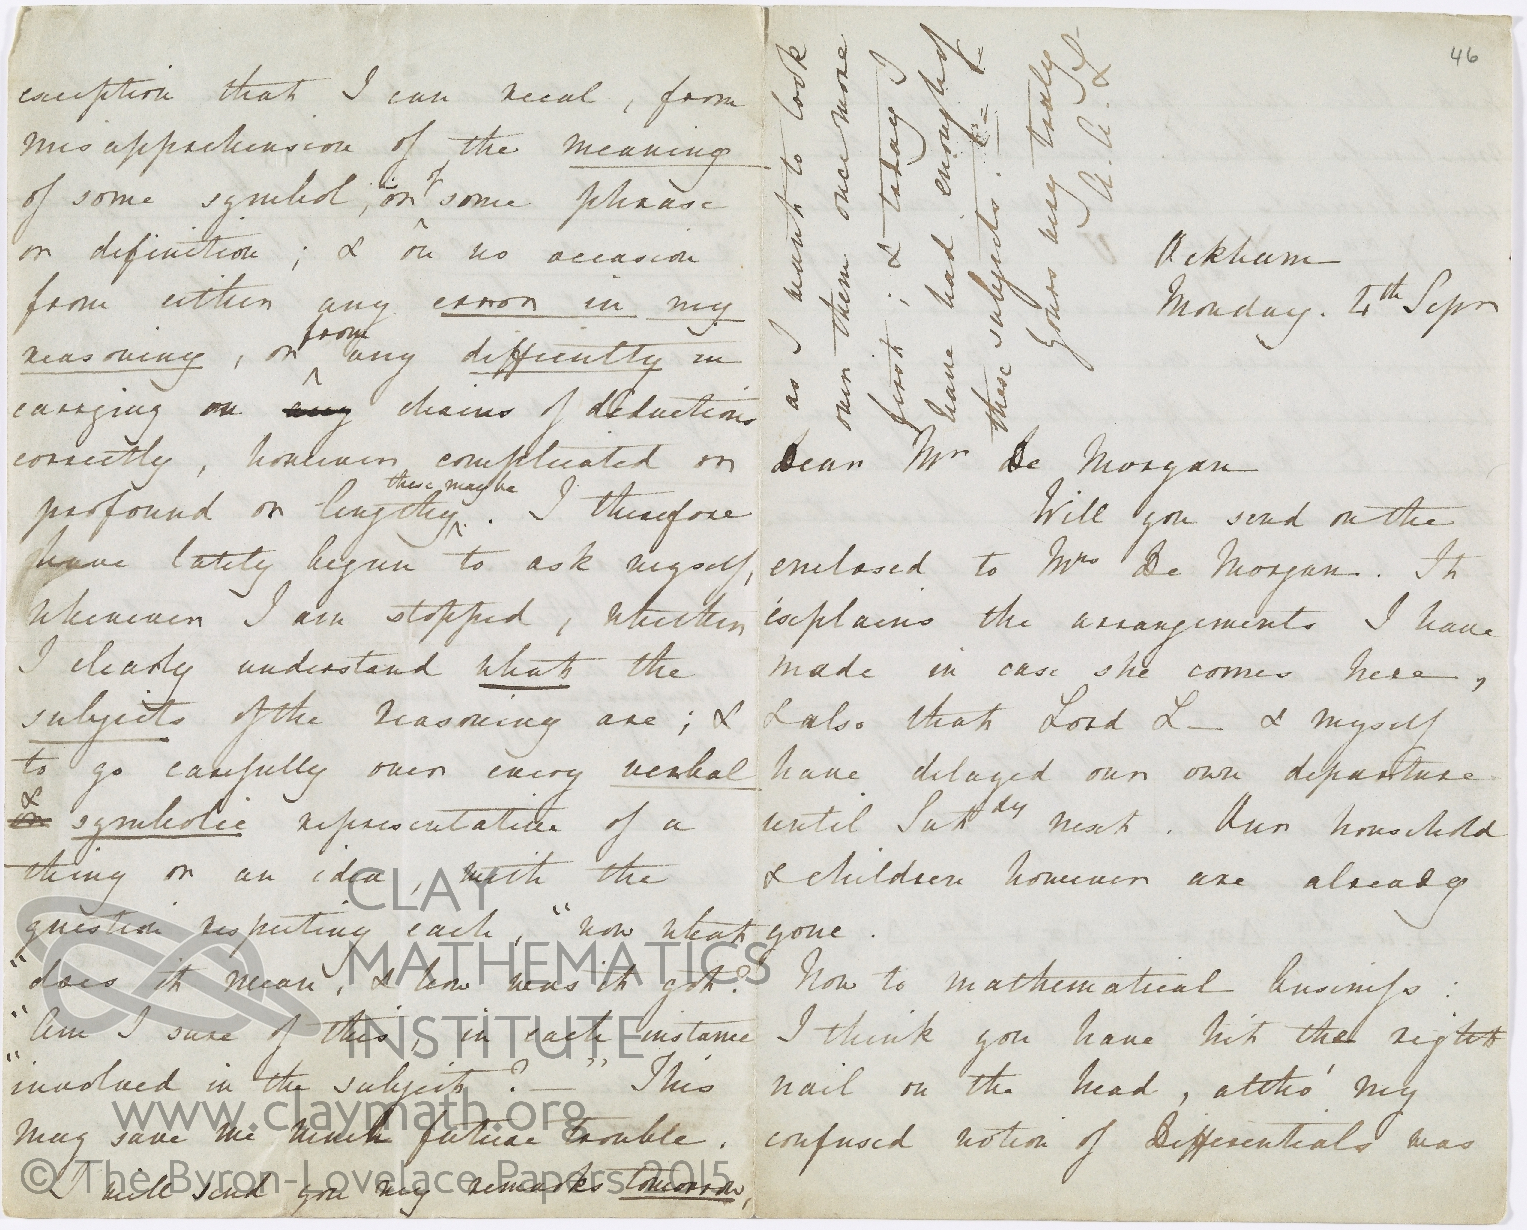 46
Ockham
Monday. 4th Sepr
Dear Mr De Morgan
Will you send on the
enclosed to Mrs De Morgan. It
explains the arrangements I have
made in case she comes here,
& also that Lord L— & myself
have delayed our own departure
until Satdy next. Our household
& children however are already
gone.
Now to mathematical business:
I think you have hit the right
nail on the head, altho' my
confused notion of Differentials was
exception that I can recal, from
misapprehension of the meaning
of some symbol, or of some phrase
or definition; & on no occasion
from either any error in my
reasoning, or from any difficulty in
carrying on any chains of deductions
correctly, however complicated or
profound or lengthy these may be. I therefore
have lately begun to ask myself,
whenever I am stopped, whether
I clearly understand what the
subjects of the reasoning are; &
to go carefully over every verbal
or & symbolic representation of a
thing or an idea, with the
question respecting each, "now what
"does it mean, & how was it got?
"Am I sure of this, in each instance
"involved in the subject? —" This
may save me much future trouble.
I will send you my remarks tomorrow,
as I want to look
over them once more
first; & today I
have had enough of
these subjects.
Yours very truly
A. A. L
CLAY
MATHEMATICS
INSTITUTE
www.claymath.org
© The Byron-Lovelace Papers 2015